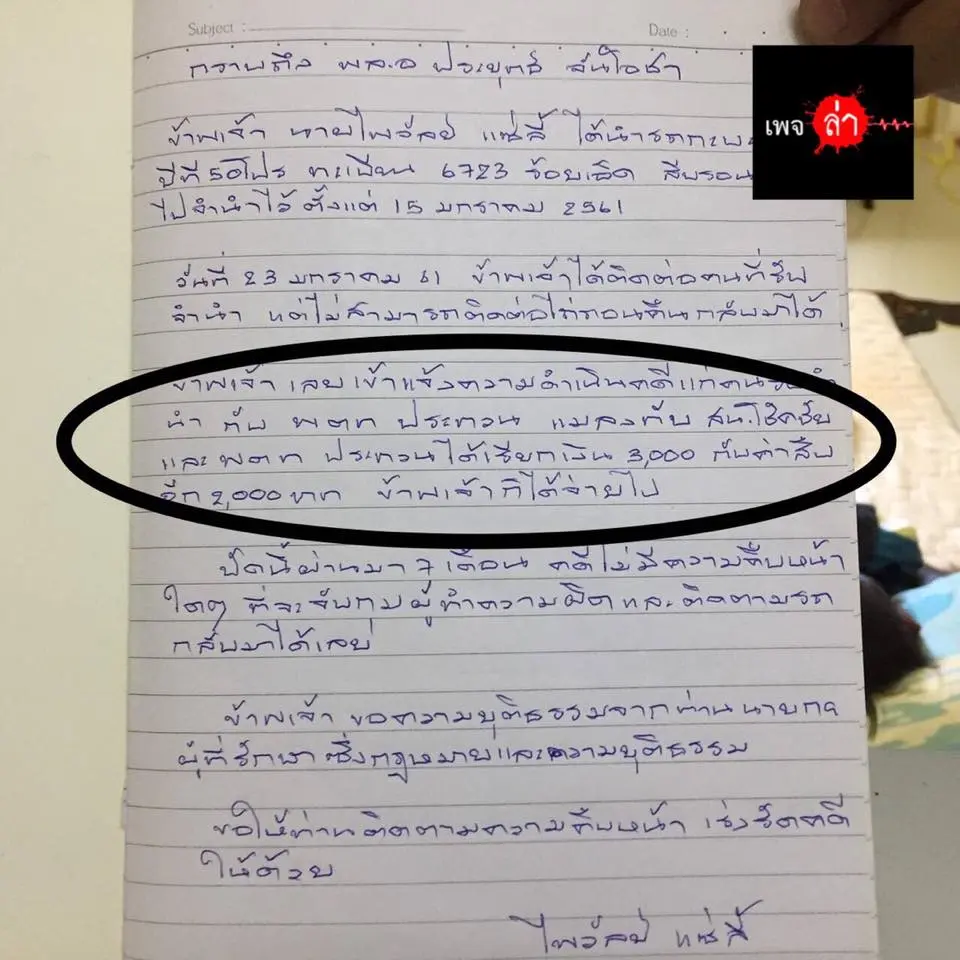 Subject :
Date :
กราบถึง พล.อ ประยุทธ์ จันโอชา
เพจ ล่า
ข้าพเจ้า นายไพวัลย์ แซ่ลี้ ได้นำรถกะบะ
ปีที 50 โปร ทะเบียน 6723 ร้อยเอ็ด สีบรอน
ไปจำนำไว้ ตั้งแต่ 15 มกราคม 2561
วันที่ 23 มกราคม 61 ข้าพเจ้าได้ติดต่อคนที่รับ
จำนำ แต่ไม่สามารถติดต่อไถ่ถอนคืนกลับมาได้
ข้าพเจ้า เลยเข้าแจ้งความดำเนินคดีแก่คนรับจำ
นำ กับ พตท ประทวน แมลงทับ สน.โชคชัย
และ พตท ประทวนได้เรียกเงิน 3,000 กับค่าสืบ
อีก 2,000 บาท ข้าพเจ้าก็ได้จ่ายไป
บัดนี้ผ่านมา 7 เดือน คดีไม่มีความคืบหน้า
ใดๆ ที่จะจับกุมผู้ทำความผิดและติดตามรถ
กลับมาได้เลย
ข้าพเจ้า ขอความยุติธรรมจากท่านนายก
ผู้ที่รักษาซึ่งกฎหมายและความยุติธรรม
ขอให้ท่านติดตามความคืบหน้า เร่งรัดคดี
ให้ด้วย
ไพวัลย์ แซ่ลี้